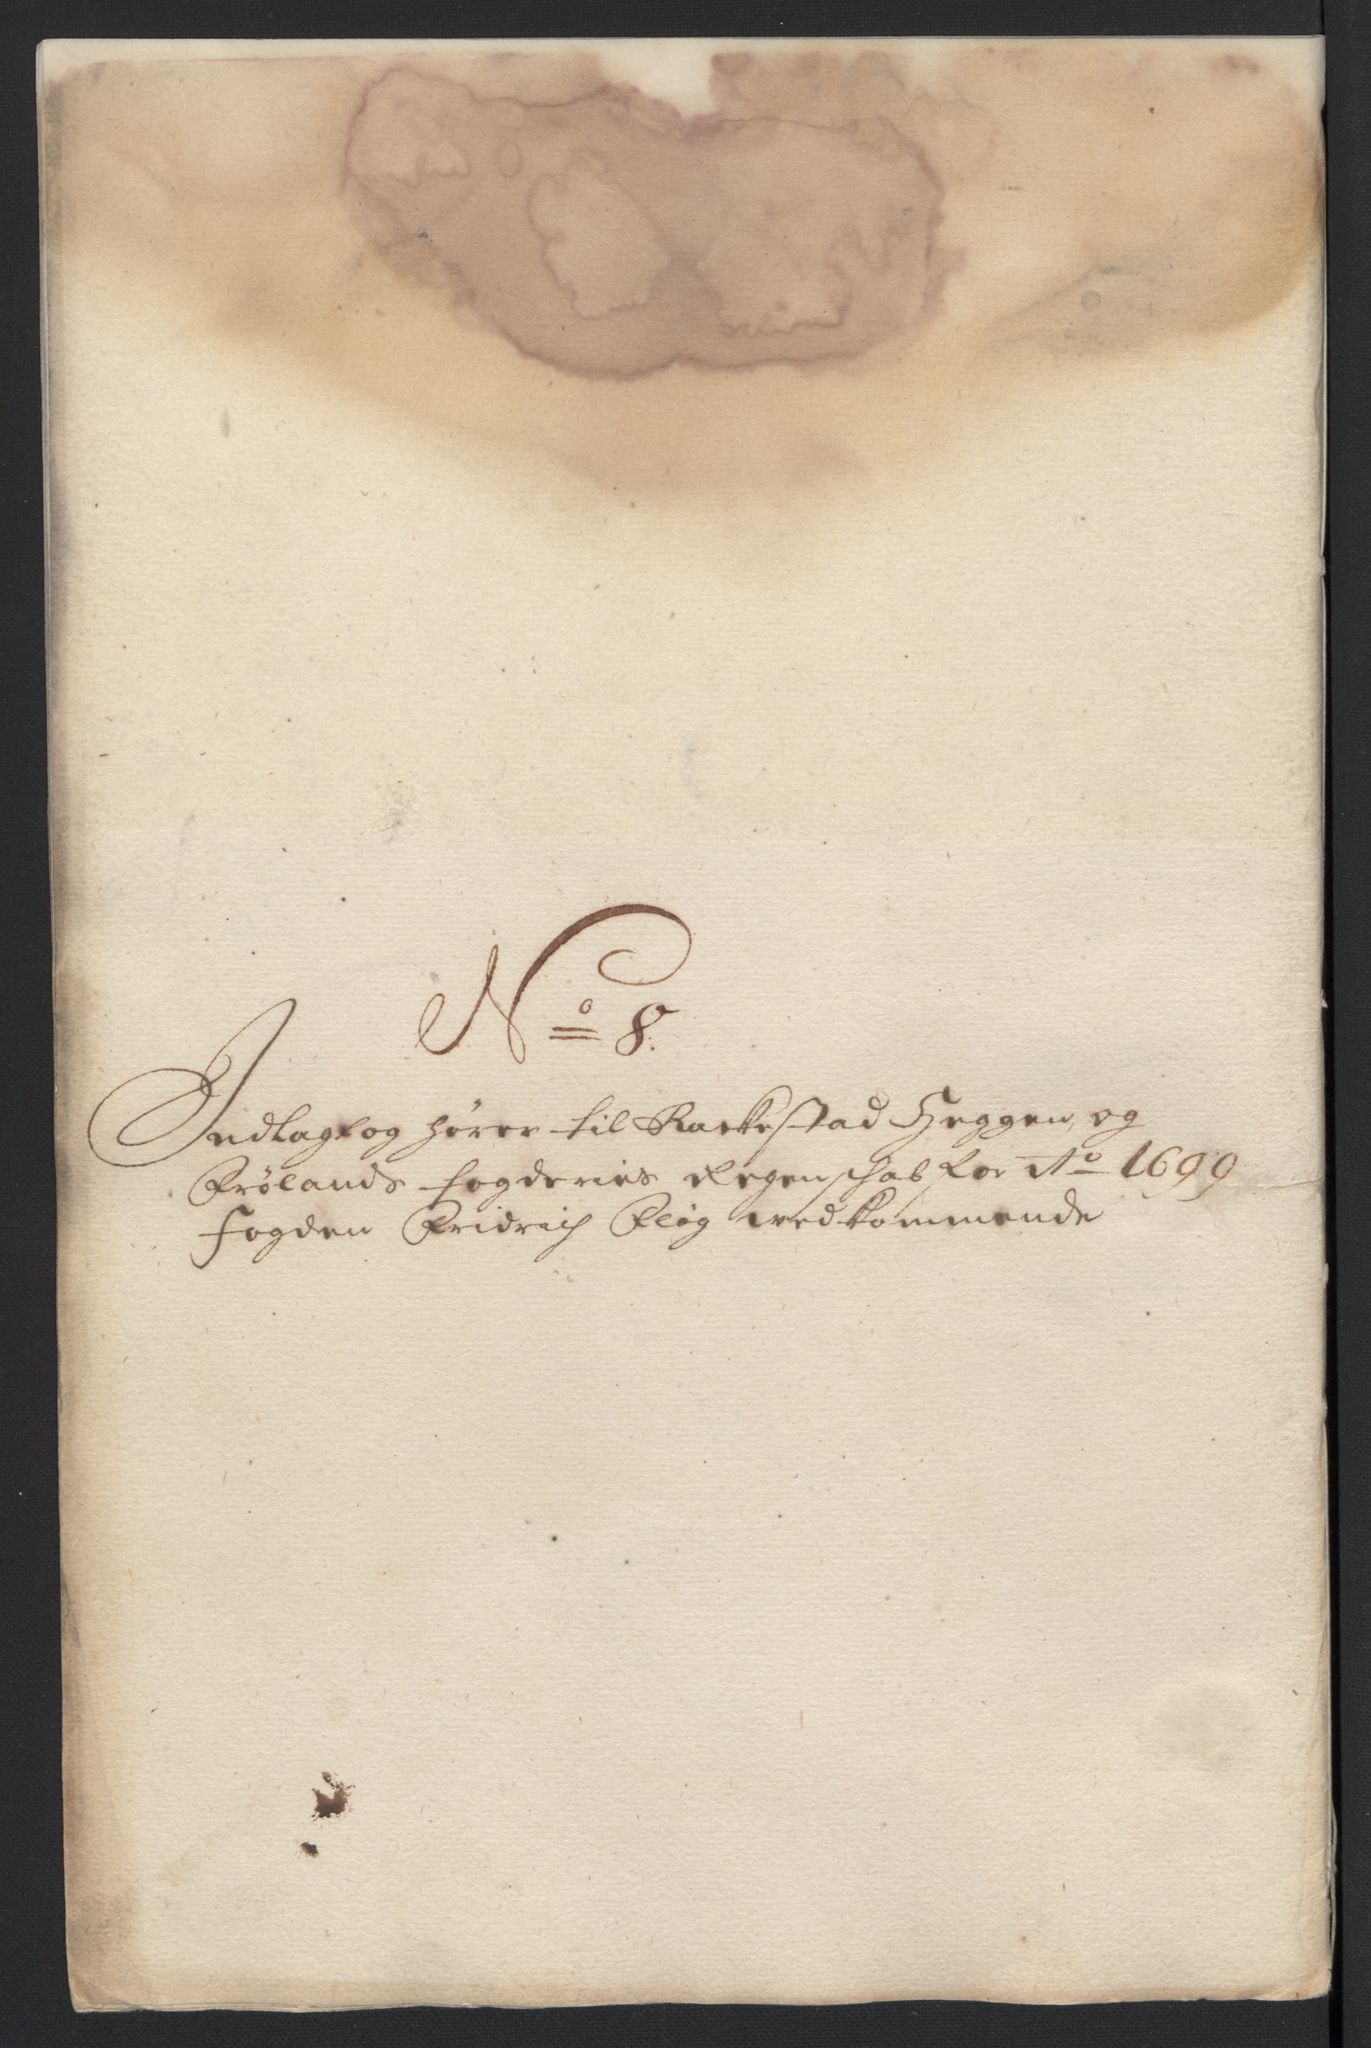 No 8.
Indlag og hører til Rackestad Heggen, og
Frølands fogderies Regenschab for Ao 1699
Fogden Fridrich Pløg wedkommende